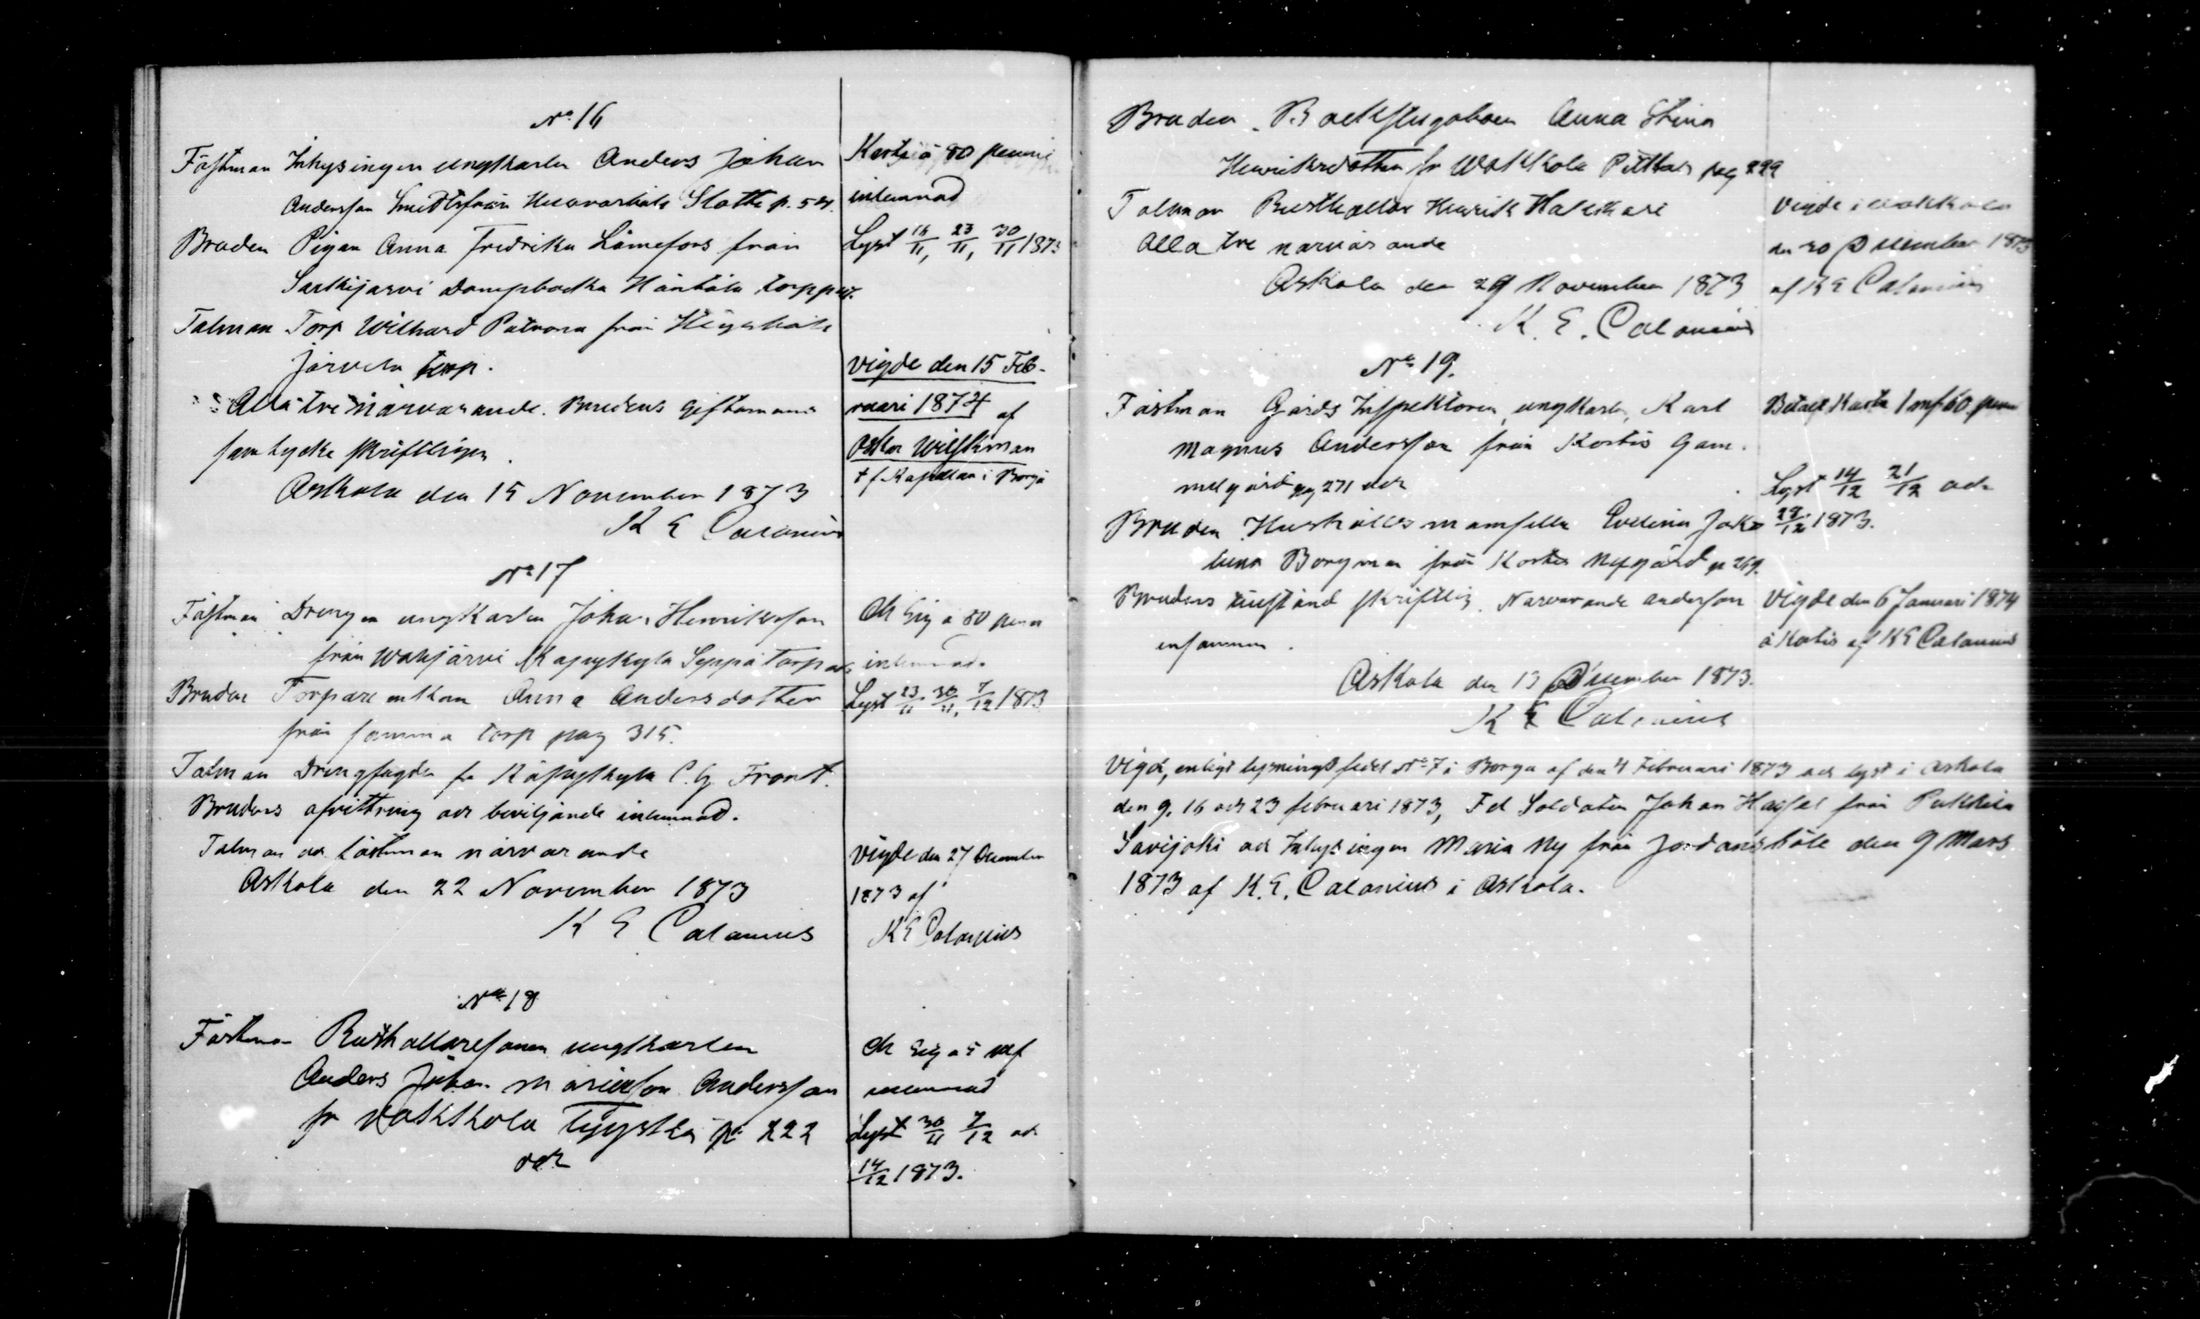 No 16
Fästman Inhysingen ungkarlen Anders Johan
Andersson Smedts från Huuvarböle Slotte p.
Bruden Pigan Anna Fredrika Lömefors från
Särkijärvi Dampbacka Häntälä torp
Talman Torp Wilhard Patrona från
Järvelä torp.
Alla tre närvarande. Brudens Giftomans
samtycke skriftligen.
Askola den 15 November 1873
K E Calonius
Karta à 80 penni
inlemnad
Lyst 16/11, 23/11, 30/11 1873
vigde den 15 Feb-
ruari 1874 af
Oskar Wilskman
t f Kapellan i Borgå
No 17
Fästman Drengen ungkarlen Johan Henriksson
från Wahijärvi Kapykylä Seppä torp och
Bruden Torpare enkan Anna Andersdotter
från samma torp pag 315.
Talman Drengfogden fr Käpykylä C. G. Front.
Brudens afvittring och beviljande inlemnad.
Talman och fästman närvarande
Askola den 22 November 1873
K E Calonius
Ch Sig a 80 penni
inlemnad.
Lyst 23/11, 30/11, 7/12 1873
Vigde den 27 December
1873 af
K E Calonius
No 18
Fästman Rusthållaresonen ungkarlen
Anders Johan Mariasson Andersson
fr Vakkola Tyysteri p: 222
och
Ch Sig a 5 mf
inlemnad
Lyst 30/11 7/12 och
14/12 1873.
Bruden. Backstugoboen Anna Stina
Henriksdotter fr Wakkola Pilttas pag 229
Talman Rusthållar Henrik Halkkari
Alla tre närvarande
Askola den 29 November 1873
K. E. Calonius
Vigde i Wakkola
den 30 December 1873
af K E Calonius
No 19.
Fästman Gårds Inspektoren, ungkarlen, Karl
Magnus Andersson från Kortis Gam-
melgård pag 271 och
Bruden Hushålls mamsellen Evelina Jako-
bina Borgman från Kortis Nygård p 269.
Brudens tillstånd skriftlig. Närvarande Andersson
ensammen.
Askola den 13 December 1873.
K E Calonius
Betalt Karta 1 mf 60 penni
Lyst 14/12 21/12 och
28/12 1873.
Vigde den 6 Januari 1874
å Kortis af K E Calonius
Vigde, enligt lysningssedel No 7 i Borgå af den 4 Februari 1873 och lyst i Askola
den 9, 16 och 23 februari 1873, Fd Soldaten Johan Hassel från Pukkila
Savijoki och Inhysingen Maria Ny från Jordansböle den 9 Mars
1873 af K. E. Calonius i Askola.